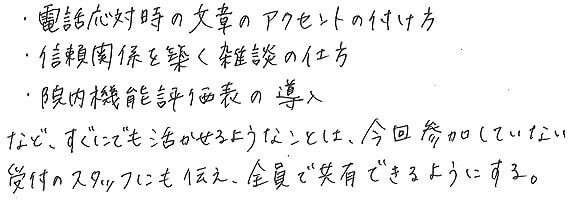 ・電話応対時の文章のアクセントの付け方
・信頼関係を築く雑談の仕方
・院内機能評価表の導入
など、すぐにでも活かせるようなことは、今回参加していない
受付のスタッフにも伝え、全員で共有できるようにする。